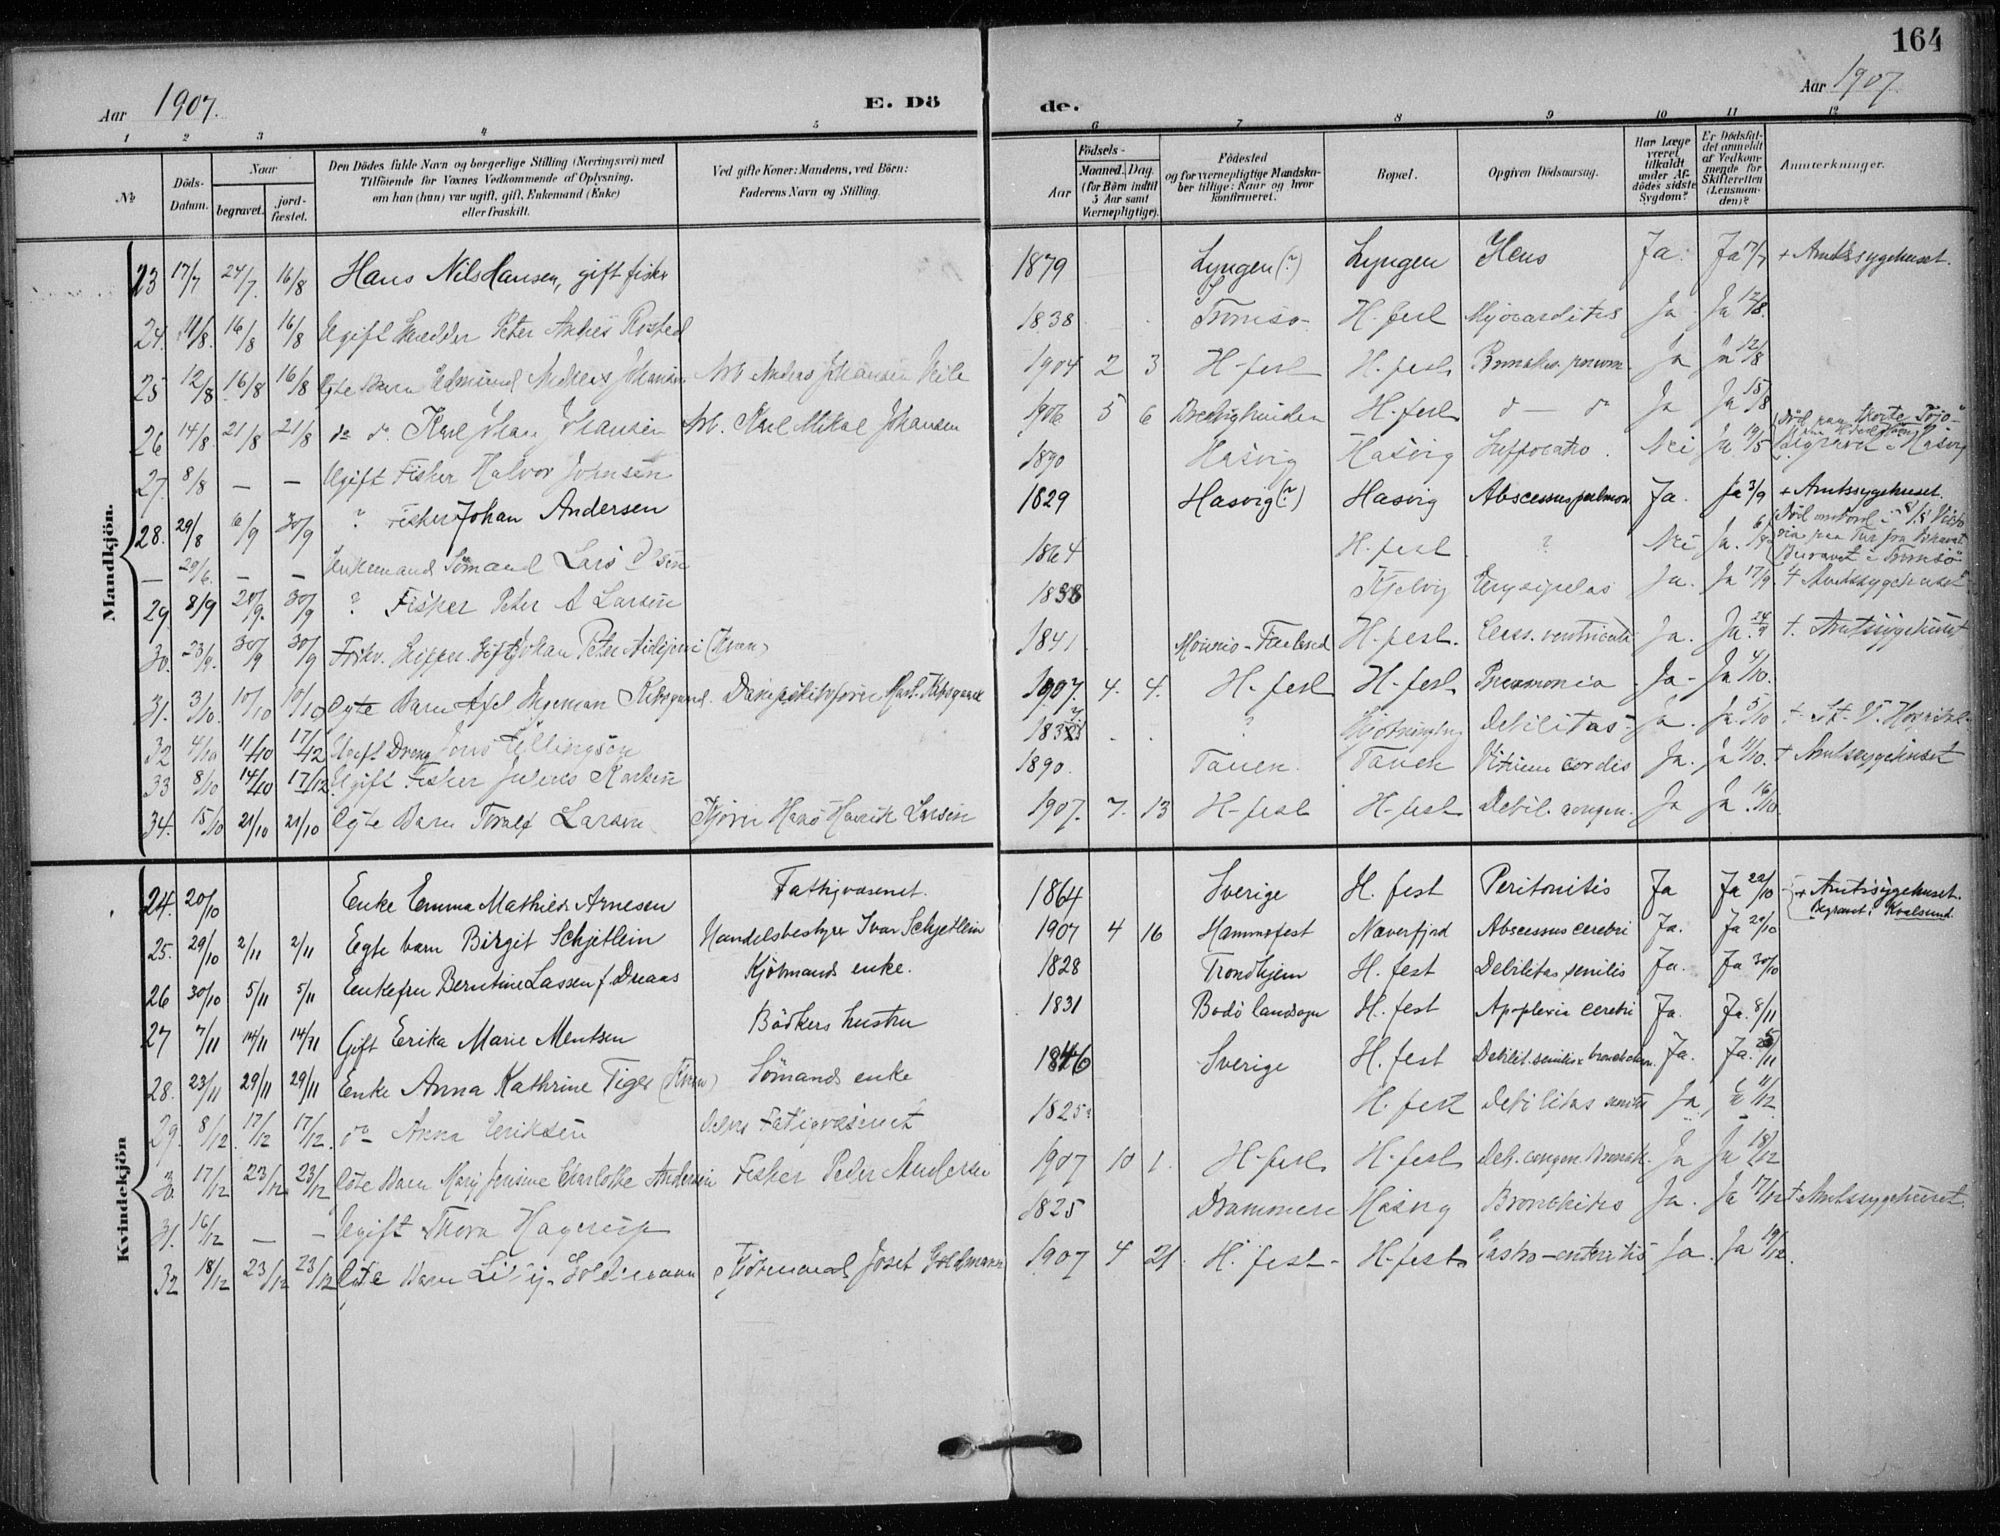 164
Aar 1907.
E. Döde.
Aar 1907
1 2 3 4 5 6 7 8 9 10 11 12
No
Döds-Datum.
Naar
begravet.
jordfæstet.
Den Dödes fulde Navn og borgerlige Stilling (Næringsvei) med
Tilföiende for Voxnes Vedkommende af Oplysning,
om han (hun) var ugift, gift, Enkemand (Enke)
eller fraskilt.
Ved gifte Koner: Mandens, ved Börn:
Faderens Navn og Stilling.
Födsels-
Aar
Maaned. Dag.
(for Börn indtil
5 Aar samt
Værnepligtige).
Födested
og for værnepligtige Mandska-
ber tillige: Naar og hvor
konfirmeret.
Bopæl.
Opgiven Dödsaarsag.
Har Læge
været
tilkaldt
under Af-
dödes sidste
Sygdom?
Er Dödsfal-
det anmeldt
af Vedkom-
mende for
Skifteretten
(Lensman-
den)?
Anmærkninger.
Mandkjön.
23 17/7 24/7. 16/8 Hans Nils Hansen, gift fisker 1879 Lyngen (?) Lyngen Ileus Ja. Ja 17/7 + Amtssygehuset.
24. 11/8. 16/8 16/8 Ugift Skrædder Peter Andreas Rosted 1838 Tromsø H.fest Myocarditis Ja Ja 12/8.
25 12/8 16/8 16/8 Ægte Barn Edmund Andreas Johansen Arb Anders Johansen 1904 2 3 H.fest H.fest Bronkop. pneum. Ja Ja 12/8
26 14/8. 21/8 21/8 do do. Karl Johan Johansen Arb. Karl Mikal Johansen 1906 5 6 H.fest d — o Ja Ja 15/8
27. 8/8 — — Ugift Fisker Halvor Johnsen 1890 Hasvig Hasvig Suffocatio. Nei Ja 19/8 Hasvig
28. 29/8 6/9 30/9 ? Fisker Johan Andersen 1829 Hasvig (?) Hasvig Abscessus pulmon. Ja. Ja 3/9 + Amtssygehuset.
— 29/6. — — Enkemand Sömand Lars Olsen 1864 H.fest ? Nei Ja. Begravet i Tromsö
29 8/9 20/9. 30/9 ? Fisker Peter A Larsen 1838 Kjelvig Erysipelas Ja. Ja 17/9 + Amtssygehuset
30. 23/9. 30/9 30/9 Gift Johan Peter (Kven) 1841 Muonio-Finland H.fest. Canc. ventriculi Ja. Ja. 24/9 +. Amtssygehuset
31. 3/10. 10/10 10/10 Ægte Barn Axel Ingeman Kibsgaard. Dampskibsfører Karl Kibsgaard 1907. 4. 4. H.fest H.fest Pneumonia Ja. Ja 4/10.
32 4/10 11/10 17/12 Ugift Dreng Jens Ellingsen ? Debilitas Ja. Ja. 5/10 +. St. V. Hospital.
33 8/10 14/10 17/12 Ugift Fisker Julius Karlsen 1890. Tanen. Tanen Vitium cordis Ja. Ja 11/10. + Amtssygehuset
34. 15/10 21/10 21/10 Ægte Barn Toralf Larsen Hans Henrik Larsen 1907. 7. 13 H-fest H-fest Debil. congen. Ja Ja 16/10.
Kvindekjön
24. 20/10 Enke Emma Mathilde Arnesen Fattigvæsenet. 1864 Sverige H. fest Peritonitis Ja Ja 22/10 + Amtssygehuset. Begravet i Kvalsund
25. 29/10 2/11 2/11 Egte barn Birgit Schjetlein Handelsbestyrer Ivar Schjetlein 1907 4 16 Hammerfest Næverfjord Abscessus cerebri Ja. Ja 29/10
26 30/10 5/11 5/11 Enkefru Berntine Lassen f. Kjöbmands enke. 1828 Trondhjem H. fest Debilitas senilis Ja. Ja 30/10
27 7/11 14/11 14/11 Gift Erika Marie Mentsen Bödkers hustru 1831 Bodö landsogn H. fest Apoplexia cerebri Ja. Ja. 8/11
28. 23/11 29/11 29/11 Enke Anna Kathrine Tiger (Kven) Sömands enke 1846 Sverige H. fest Debilit. senilis Ja. Ja. 25/11
29. 8/12 17/12 17/12. do Anna Eriksen Fattigvæsenet 1825 H. fest Debilitas senilis Ja Ja 11/12.
30. 17/12 23/12 23/12 Ægte Barn Mary Jensine Charlotte Andersen Fisker Peder Andersen 1907 10 1. H-fest H-fest Deb. congen. Bronk. Ja Ja 18/12
31. 16/12 — — Ugift Thora Hagerup 1825 Drammen Hasvig Bronchitis Ja. Ja 17/12 + Amtssygehuset.
32 18/12 23/12 23/12 Ægte Barn Lilly Goldmann Kjöbmand Josef Goldmann 1907 4 21. H. fest. H-fest Gastro-enteritis Ja. Ja 19/12.